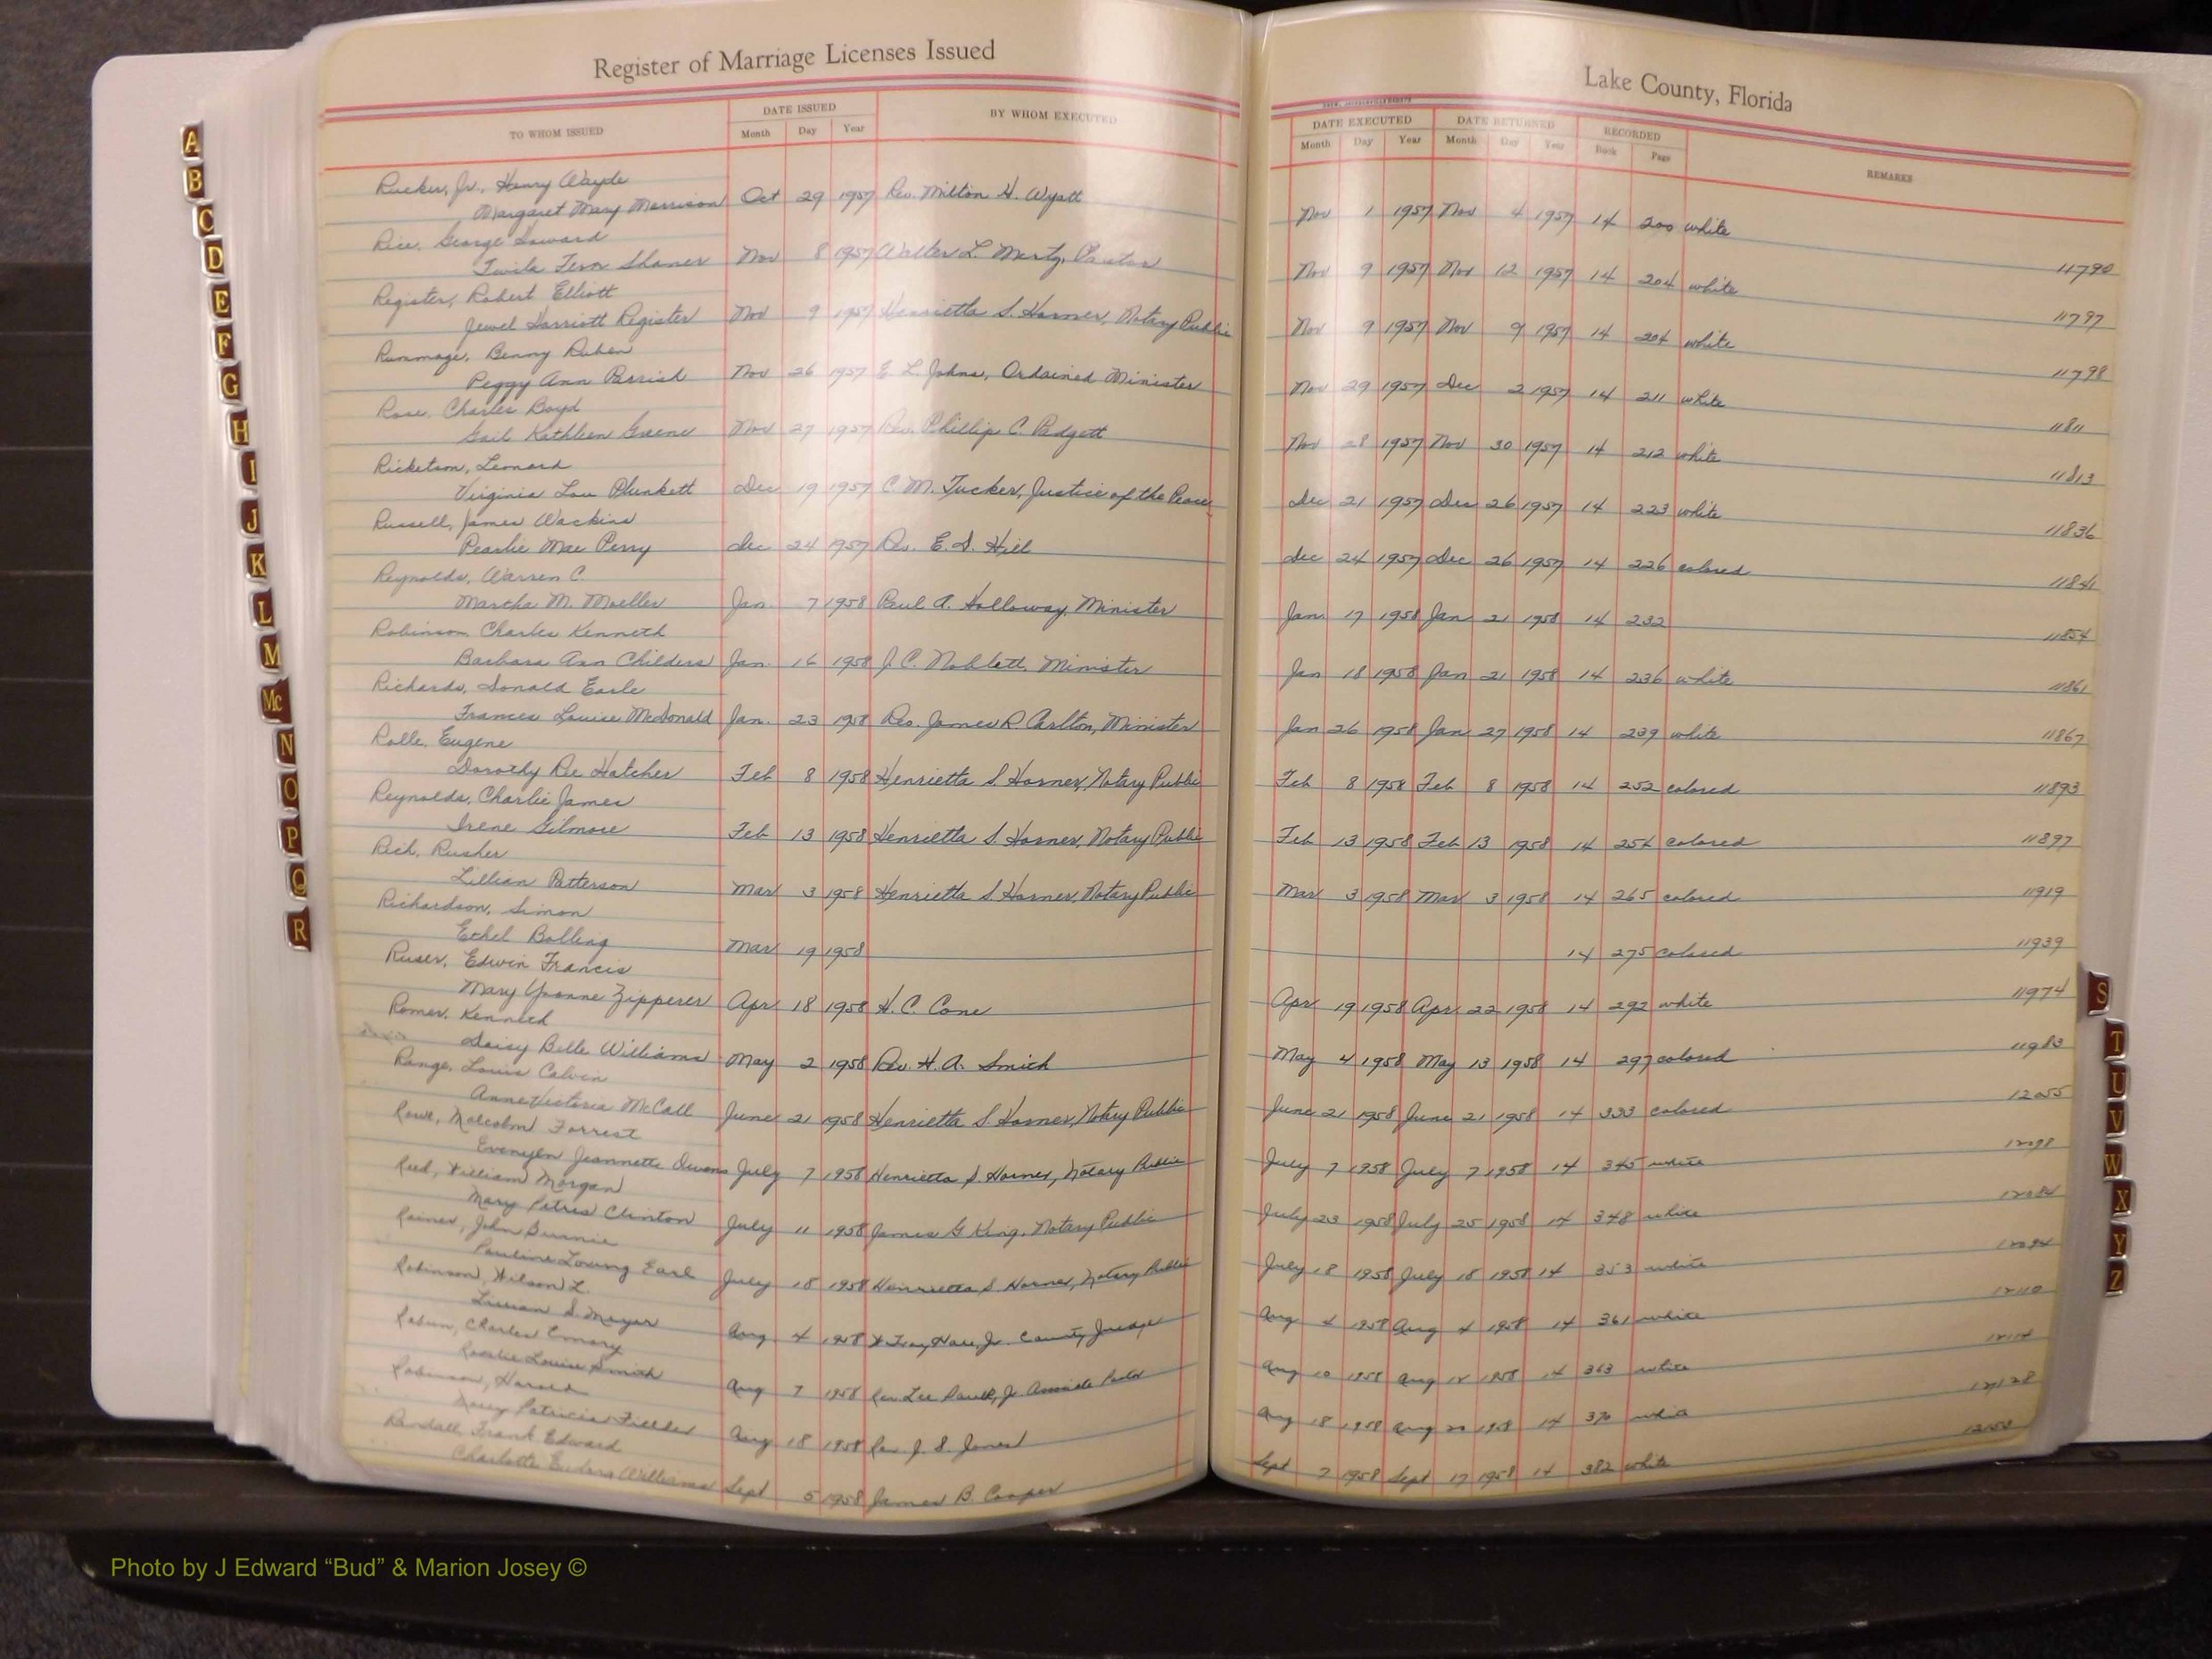 Register of Marriage Licenses Issued
Lake County, Florida
TO WHOM ISSUED
DATE ISSUED
Month Day Year
BY WHOM EXECUTED
DATE EXECUTED DATE RETURNED RECORDED
Month Day Year Month Day Year Book Page
REMARKS
Rucker, Jr., Henry Wayde
Margaret Mary Morrison Oct 29 1957 Rev. Milton H. Wyatt Nov 1 1957 Nov 4 1957 14 200 white 11790
Rice, George Howard
Twila Fern Shaner Nov 8 1957 Walter L. Mertz, Pastor Nov 9 1957 Nov 12 1957 14 204 white 11797
Register, Robert Elliott
Jewel Harriott Register Nov 9 1957 Henrietta S. Horner, Notary Public Nov 9 1957 Nov 9 1957 14 204 white 11798
Rummage, Benny Ruben
Peggy Ann Parrish Nov 26 1957 E. L. Johns, Ordained Minister Nov 29 1957 Dec 2 1957 14 211 white 11811
Rose, Charles Boyd
Gail Kathleen Greene Nov 27 1957 Rev. Phillip C. Padgett Nov 28 1957 Nov 30 1957 14 212 white 11813
Ricketson, Leonard
Virginia Lou Plunkett Dec 19 1957 C. M. Tucker, Justice of the Peace Dec 21 1957 Dec 26 1957 14 223 white 11836
Russell, James
Pearlie Mae Perry Dec 24 1957 Rev. E. D. Hill Dec 24 1957 Dec 26 1957 14 226 colored 11841
Reynolds, Warren C.
Martha M. Moeller Jan. 7 1958 Paul A. Holloway, Minister Jan 17 1958 Jan 21 1958 14 232 11854
Robinson, Charles Kenneth
Barbara Ann Childers Jan. 16 1958 J. C. Noblett, Minister Jan 18 1958 Jan 21 1958 14 236 white 11861
Richards, Donald Earle
Frances Louise McDonald Jan. 23 1958 Rev. James R. Carlton, Minister Jan 26 1958 Jan 27 1958 14 239 white 11867
Rolle, Eugene
Dorothy Dee Hatcher Feb 8 1958 Henrietta S. Horner, Notary Public Feb 8 1958 Feb 8 1958 14 252 colored 11893
Reynolds, Charlie James
Irene Gilmore Feb 13 1958 Henrietta S. Horner, Notary Public Feb 13 1958 Feb 13 1958 14 254 colored 11897
Rich, Rusher
Lillian Patterson Mar 3 1958 Henrietta S. Horner, Notary Public Mar 3 1958 Mar 3 1958 14 265 colored 11919
Richardson, Simon
Ethel Bolling Mar 19 1958 14 275 colored 11939
Ruser, Edwin Francis
Mary Yvonne Zipperer Apr 18 1958 H. C. Cone Apr 19 1958 Apr 22 1958 14 292 white 11974
Romer, Kenneth
Daisy Belle Williams May 2 1958 Rev. H. A. Smith May 4 1958 May 13 1958 14 297 colored 11983
Range, Louis Calvin
Anne Victoria McCall June 21 1958 Henrietta S. Horner, Notary Public June 21 1958 June 21 1958 14 333 colored 12055
Rowe, Malcolm Forrest
Jeannette Owens July 7 1958 Henrietta S. Horner, Notary Public July 7 1958 July 7 1958 14 345 white
Reed, William Morgan
Mary Petres Clinton July 11 1958 James G King, Notary Public July 23 1958 July 25 1958 14 348 white
Rainer, John Burnie
Pauline Loving Earl July 18 1958 Henrietta S. Horner, Notary Public July 18 1958 July 18 1958 14 353 white
Robinson, Wilson L.
Lillian S. Meyer Aug 4 1958 W Troy Hall, Jr. County Judge Aug 4 1958 Aug 4 1958 14 361 white 12110
Charles Emory
Rosalie Louise Smith Aug 7 1958 Rev Lee Jr Associate Pastor Aug 10 1958 Aug 12 1958 14 363 white 12114
Robinson, Harold
Patricia Fielder Aug 18 1958 Rev J. S. Jones Aug 18 1958 Aug 20 1958 14 370 white 12128
Randall, Frank Edward
Charlotte Williams Sept 5 1958 James B. Cooper Sept 7 1958 Sept 17 1958 14 382 white
A
B
C
D
E
F
G
H
I
J
K
L
M
Mc
N
O
P
Q
R
S
T
U
V
W
X
Y
Z
Photo by J Edward “Bud” & Marion Josey ©